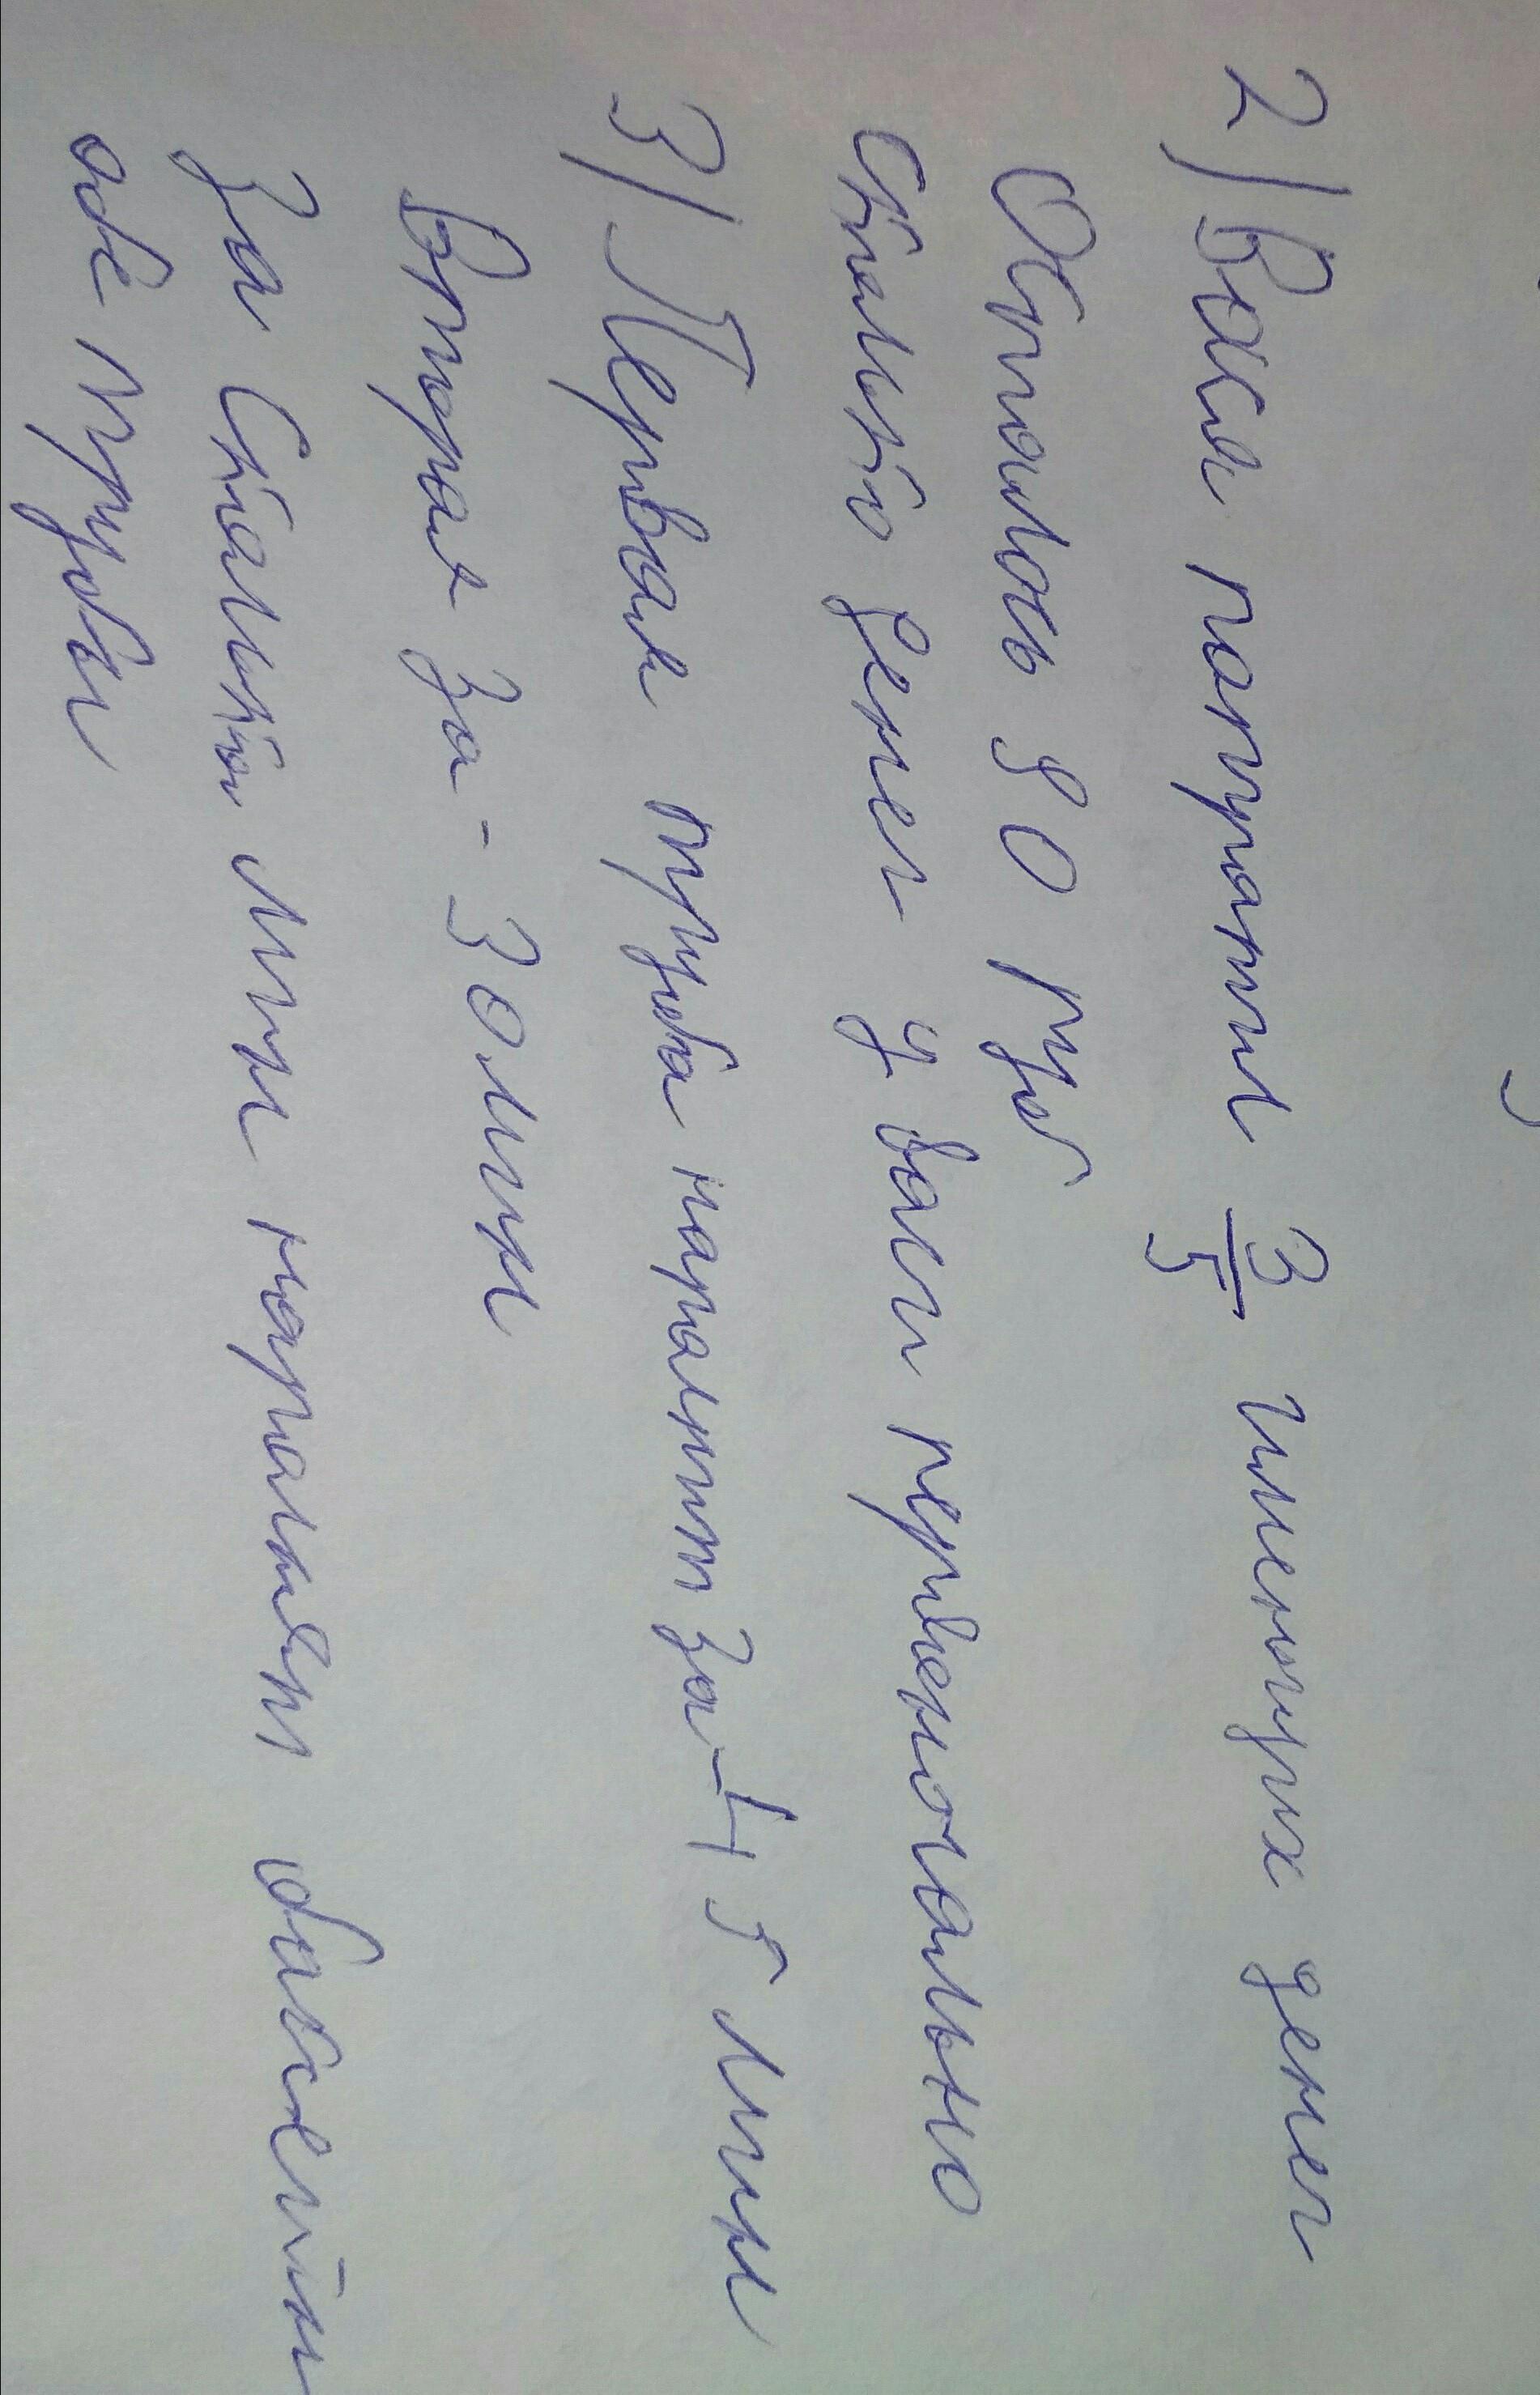 2) Вася потратил 3/5 имеющих денег
Осталось 90 руб
Сколько денег у васи первеночально
3) Первая труба наполнит за - 45 мин
Вторая за - 30 мин
За сколько мин наполнят бассейн
обе трубы